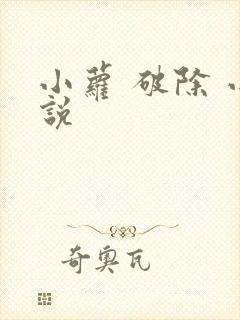 小蘿 破除
說
奇奧瓦